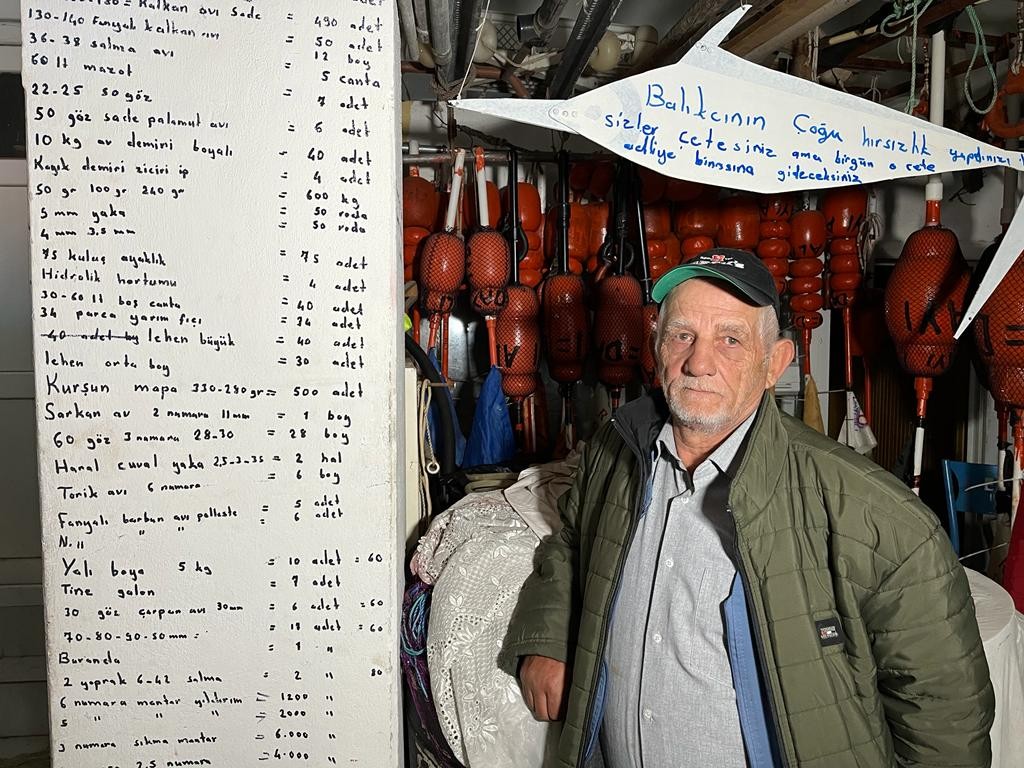 130-180 = Kalkan avı sade = 490 adet
130-140 Fanyalı kalkan avı = 50 adet
36-38 salma avı = 12 boy
60 lt mazot = 5 canta
22-25 50 göz = 7 adet
50 göz sade palamut avı = 6 adet
10 kg av demiri boyalı = 40 adet
Kayık demiri ziciri ip = 4 adet
50 gr 100 gr 240 gr = 600 kg
5 mm yaka = 50 roda
4 mm 3,5 mm = 50 roda
75 kulaç ayaklık = 75 adet
Hidrolik hortumu = 4 adet
30-60 lt boş canta = 40 adet
34 parca yarım fıçı = 34 adet
lehen büyük = 40 adet
lehen orta boy = 30 adet
Kurşun mapa 330-280 gr = 500 adet
Sarkan av 2 numara 11 mm = 1 boy
60 göz 3 numara 28-30 = 28 boy
Hanal cuval yaka 2,5-3-3,5 = 2 hal
Torik avı 6 numara = 6 boy
Fanyalı barbun avı palluste = 5 adet
N. ıı " " = 6 adet
Yalı boya 5 kg = 10 adet = 60
Tine galon = 7 adet
30 göz çarpan avı 30 mm = 6 adet = 60
70-80-90-50 mm = 18 adet = 60
Buranda = 1 "
2 yaprak 6-42 salma = 2 " 80
6 numara mantar yıldırım = 1200 "
5 " " " = 2000 "
3 numara sıkma mantar = 6.000 "
2,5 numara = 4.000 "
Balıkcının Çoğu hırsızlık yaptınız
sizler çetesiniz ama birgün o cete
adliye binasına gideceksiniz